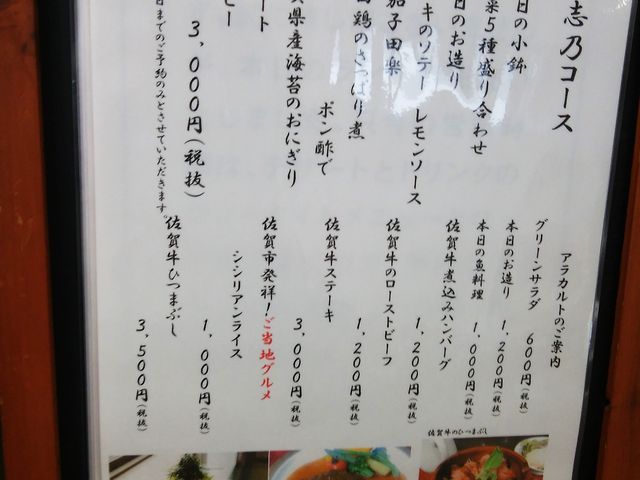 志乃コース
日の小鉢
菜5種盛り合わせ
日のお造り
キのソテー レモンソース
茄子田楽
鶏のさっぱり煮
ポン酢で
県産海苔のおにぎり
ート
ヒー
3,000円(税抜)
日までのご予約のみとさせていただきます。
アラカルトのご案内
グリーンサラダ 600円(税抜)
本日のお造り 1,200円(税抜)
本日の魚料理 1,000円(税抜)
佐賀牛煮込みハンバーグ 1,200円(税抜)
佐賀牛のローストビーフ 1,200円(税抜)
佐賀牛ステーキ 3,000円(税抜)
佐賀市発祥!ご当地グルメ
シシリアンライス 1,000円(税抜)
佐賀牛ひつまぶし 3,500円(税抜)
佐賀牛のひつまぶし